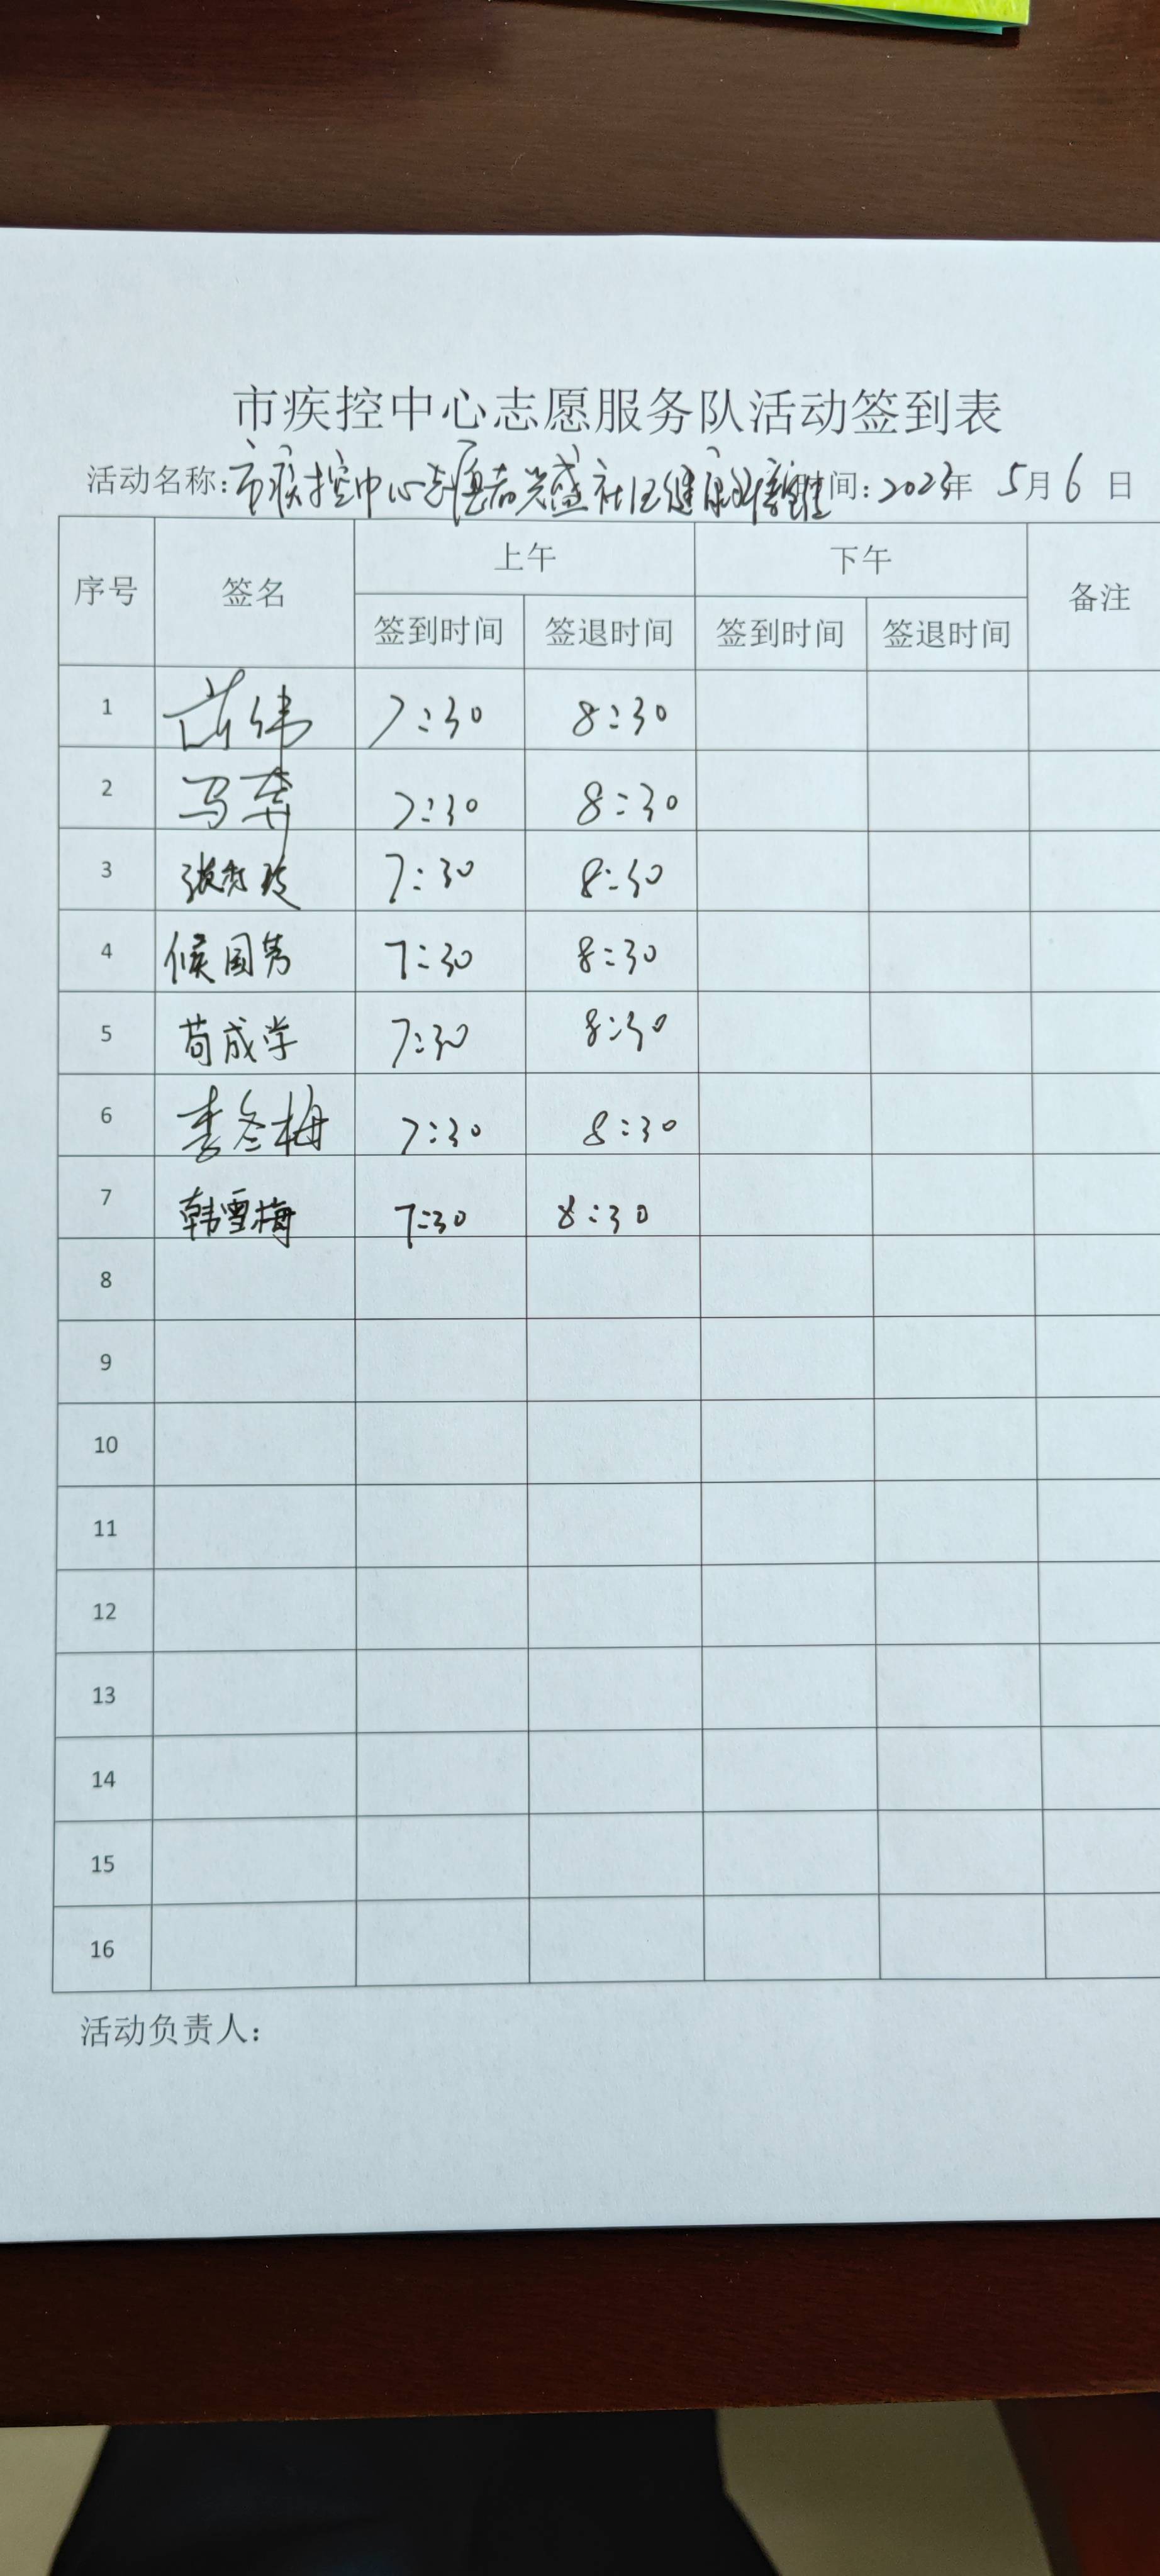 市疾控中心志愿服务队活动签到表
活动名称:市疾控中心志愿者兴盛社区健康 时间:2023年 5月6日
序号 签名 上午 下午 备注
签到时间 签退时间 签到时间 签退时间
1 伟 7:30 8:30
2 马 7:30 8:30
3 张秀玲 7:30 8:30
4 候国芳 7:30 8:30
5 苟成学 7:30 8:30
6 李冬梅 7:30 8:30
7 韩雪梅 7:30 8:30
8
9
10
11
12
13
14
15
16
活动负责人: